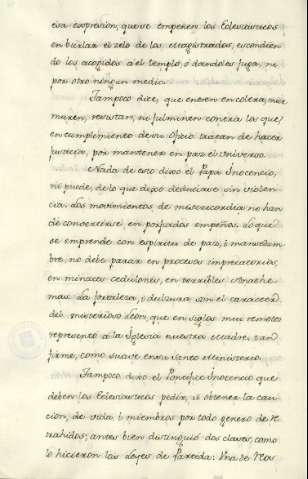 esa expresion, que se empeñen los Eclesiasticos
en burlar el zelo de los encargados, escondien
do los acogidos à el templo, ò dandoles fuga, ni
por otro ningun medio.
Tampoco dice, que entren en colera, mur
muren, resistan, ni fulminen contra los que
en cumplimiento de su Oficio tratan de hacer
Justicia, por mantener en paz el Universo.
Nada de esto dixo el Papa Inocencio,
ni puede, de lo que dixo deducirse sin violen
cia: los movimientos de misericordia no han
de convertirse en porfiados empeños. Lo que
se emprende con espiritu de paz, i mansedum
bre, no debe parar en procesos imprecatorios,
en minaces cedulones, en terribles Anathe
mas. La fortaleza, i dulzura son el caracter
del misterioso Leon, que en siglos mui remotos
representò a la Iglesia nuestra Madre, tan
firme, como suave en su tierno Ministerio.
Tampoco dixo el Pontifice Inocencio que
deben los Eclesiasticos pedir, i obtener la cau
cion, de vida, i miembros por todo genero de Re
trahidos; antes bien distinguió dos clases, como
lo hicieron las Leyes de Partida: Una de Reos